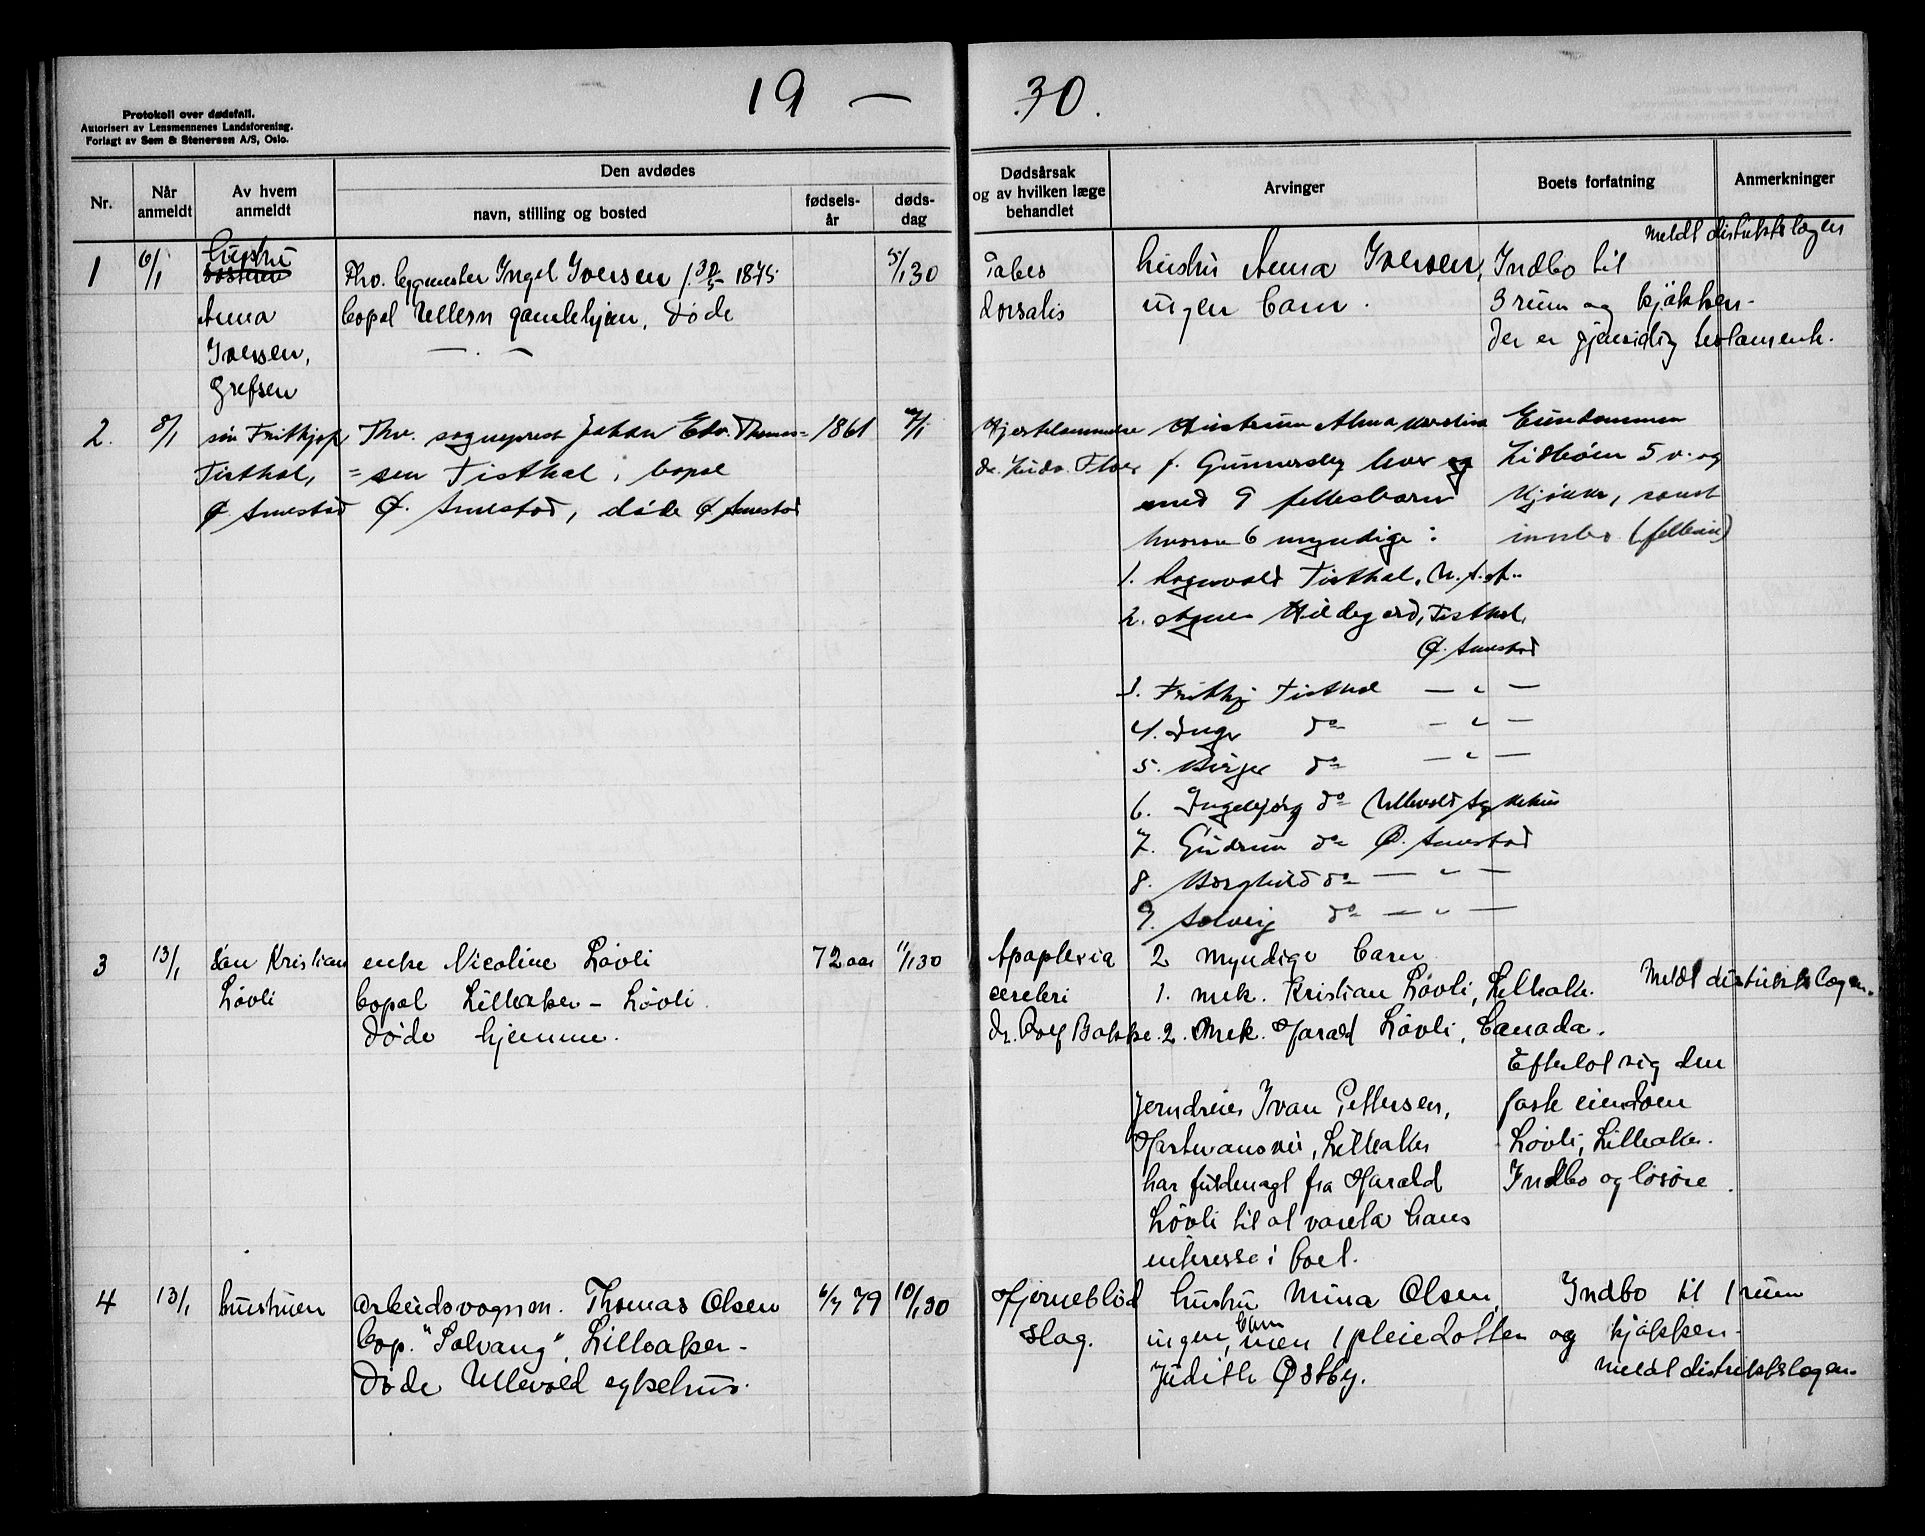 19 — 30.
Protokoll over dødsfall.
Autorisert av Lensmennenes Landsforening.
Forlagt av Sem & Stenersen A/S, Oslo.
Nr.
Når anmeldt
Av hvem anmeldt
Den avdødes
navn, stilling og bosted
fødsels-
år
døds-
dag
Dødsårsak
og av hvilken læge
behandlet
Arvinger
Boets forfatning
Anmerkninger
1 6/1 hustru
Anna
Iversen,
Grefsen
Fhv. bygmester Ingel Iversen f. 1875
bopel Ullern gamlehjem, døde
5/1 30
Tabes
dorsalis
hustru Anna Iversen,
ingen barn.
Indbo til
3 rum og kjøkken-
Der er gjensidig testamente.
meldt distriktslægen
2. 8/1 søn Frithjof
Tisthal,
Ø. Arnestad
Fhv. sogneprest Johan Edv. Thomas=
=sen Tisthal, bopæl
Ø. Arnestad, døde Ø Arnestad
1861
Hjertelammelse
dr. Ludv. Floer
Hustruen Alma
f. Gunnersby hver og
med 9 fellesbarn
hvorav 6 myndige:
1. Ragnvald Tisthal, U.S.A..
2. Agnes Hildegard, Tisthal,
Ø. Arnestad
3. Frithj Tisthal — " —
4. Inger do — " —
5. Birger do — " —
6. Ingebjørg do Ullevold Sykehus
7. Gudrun do Ø. Arnestad
8. Borghild do — " —
9. Solveig do — " —
Eiendommen
Lidhøien 5 v. og
kjøkken, samt
innbo (felleseie)
3 13/1 søn Kristian
Løvli
enke Nicoline Løvli
bopel Lilleaker – Løvli.
Døde hjemme.
72 aar
11/1 30
Apoplexia
cerebri
dr. Rolf Bakke.
2 myndige barn
1. mek. Kristian Løvli, Lilleaker.
2. Mek. Harald Løvli, Canada.
Jerndreier Ivan Pettersen,
Hartmansvei, Lilleaker
har fuldmagt fra Harald
Løvli til at vareta hans
interesse i boet.
meldt distriktslægen.
Efterlot sig den
faste eiendom
Løvli, Lilleaker.
Indbo og løsøre.
4 13/1 hustruen
Arbeidsvognm. Thomas Olsen
bop. "Solvang", Lilleaker-
døde Ullevold sykehus.
6/7 79
10/1 30
Hjerneblød
slag.
hustru Mina Olsen,
ingen barn, men 1 pleiedatter
Judith Østby.
Indbo til 1 rum
og kjøkken-
meldt distriktslægen.